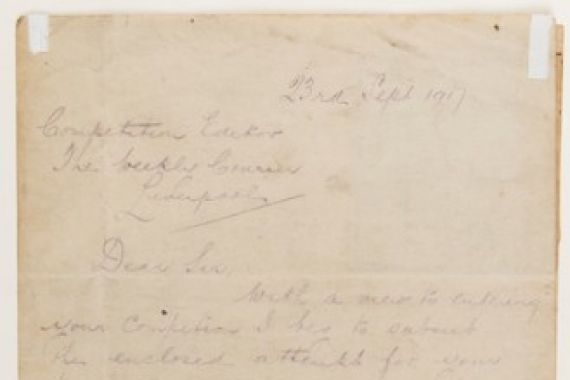 23rd Sept 1917
Competition Editor
The Weekly Courier
Liverpool
Dear Sir,
With a view to entering
your Competion I beg to submit
the enclosed attempt for your